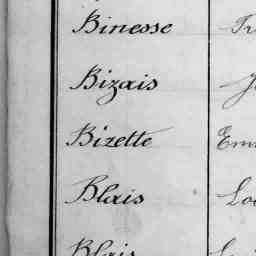 Binesse
Bizais
Bizette Em
Blais
Blais